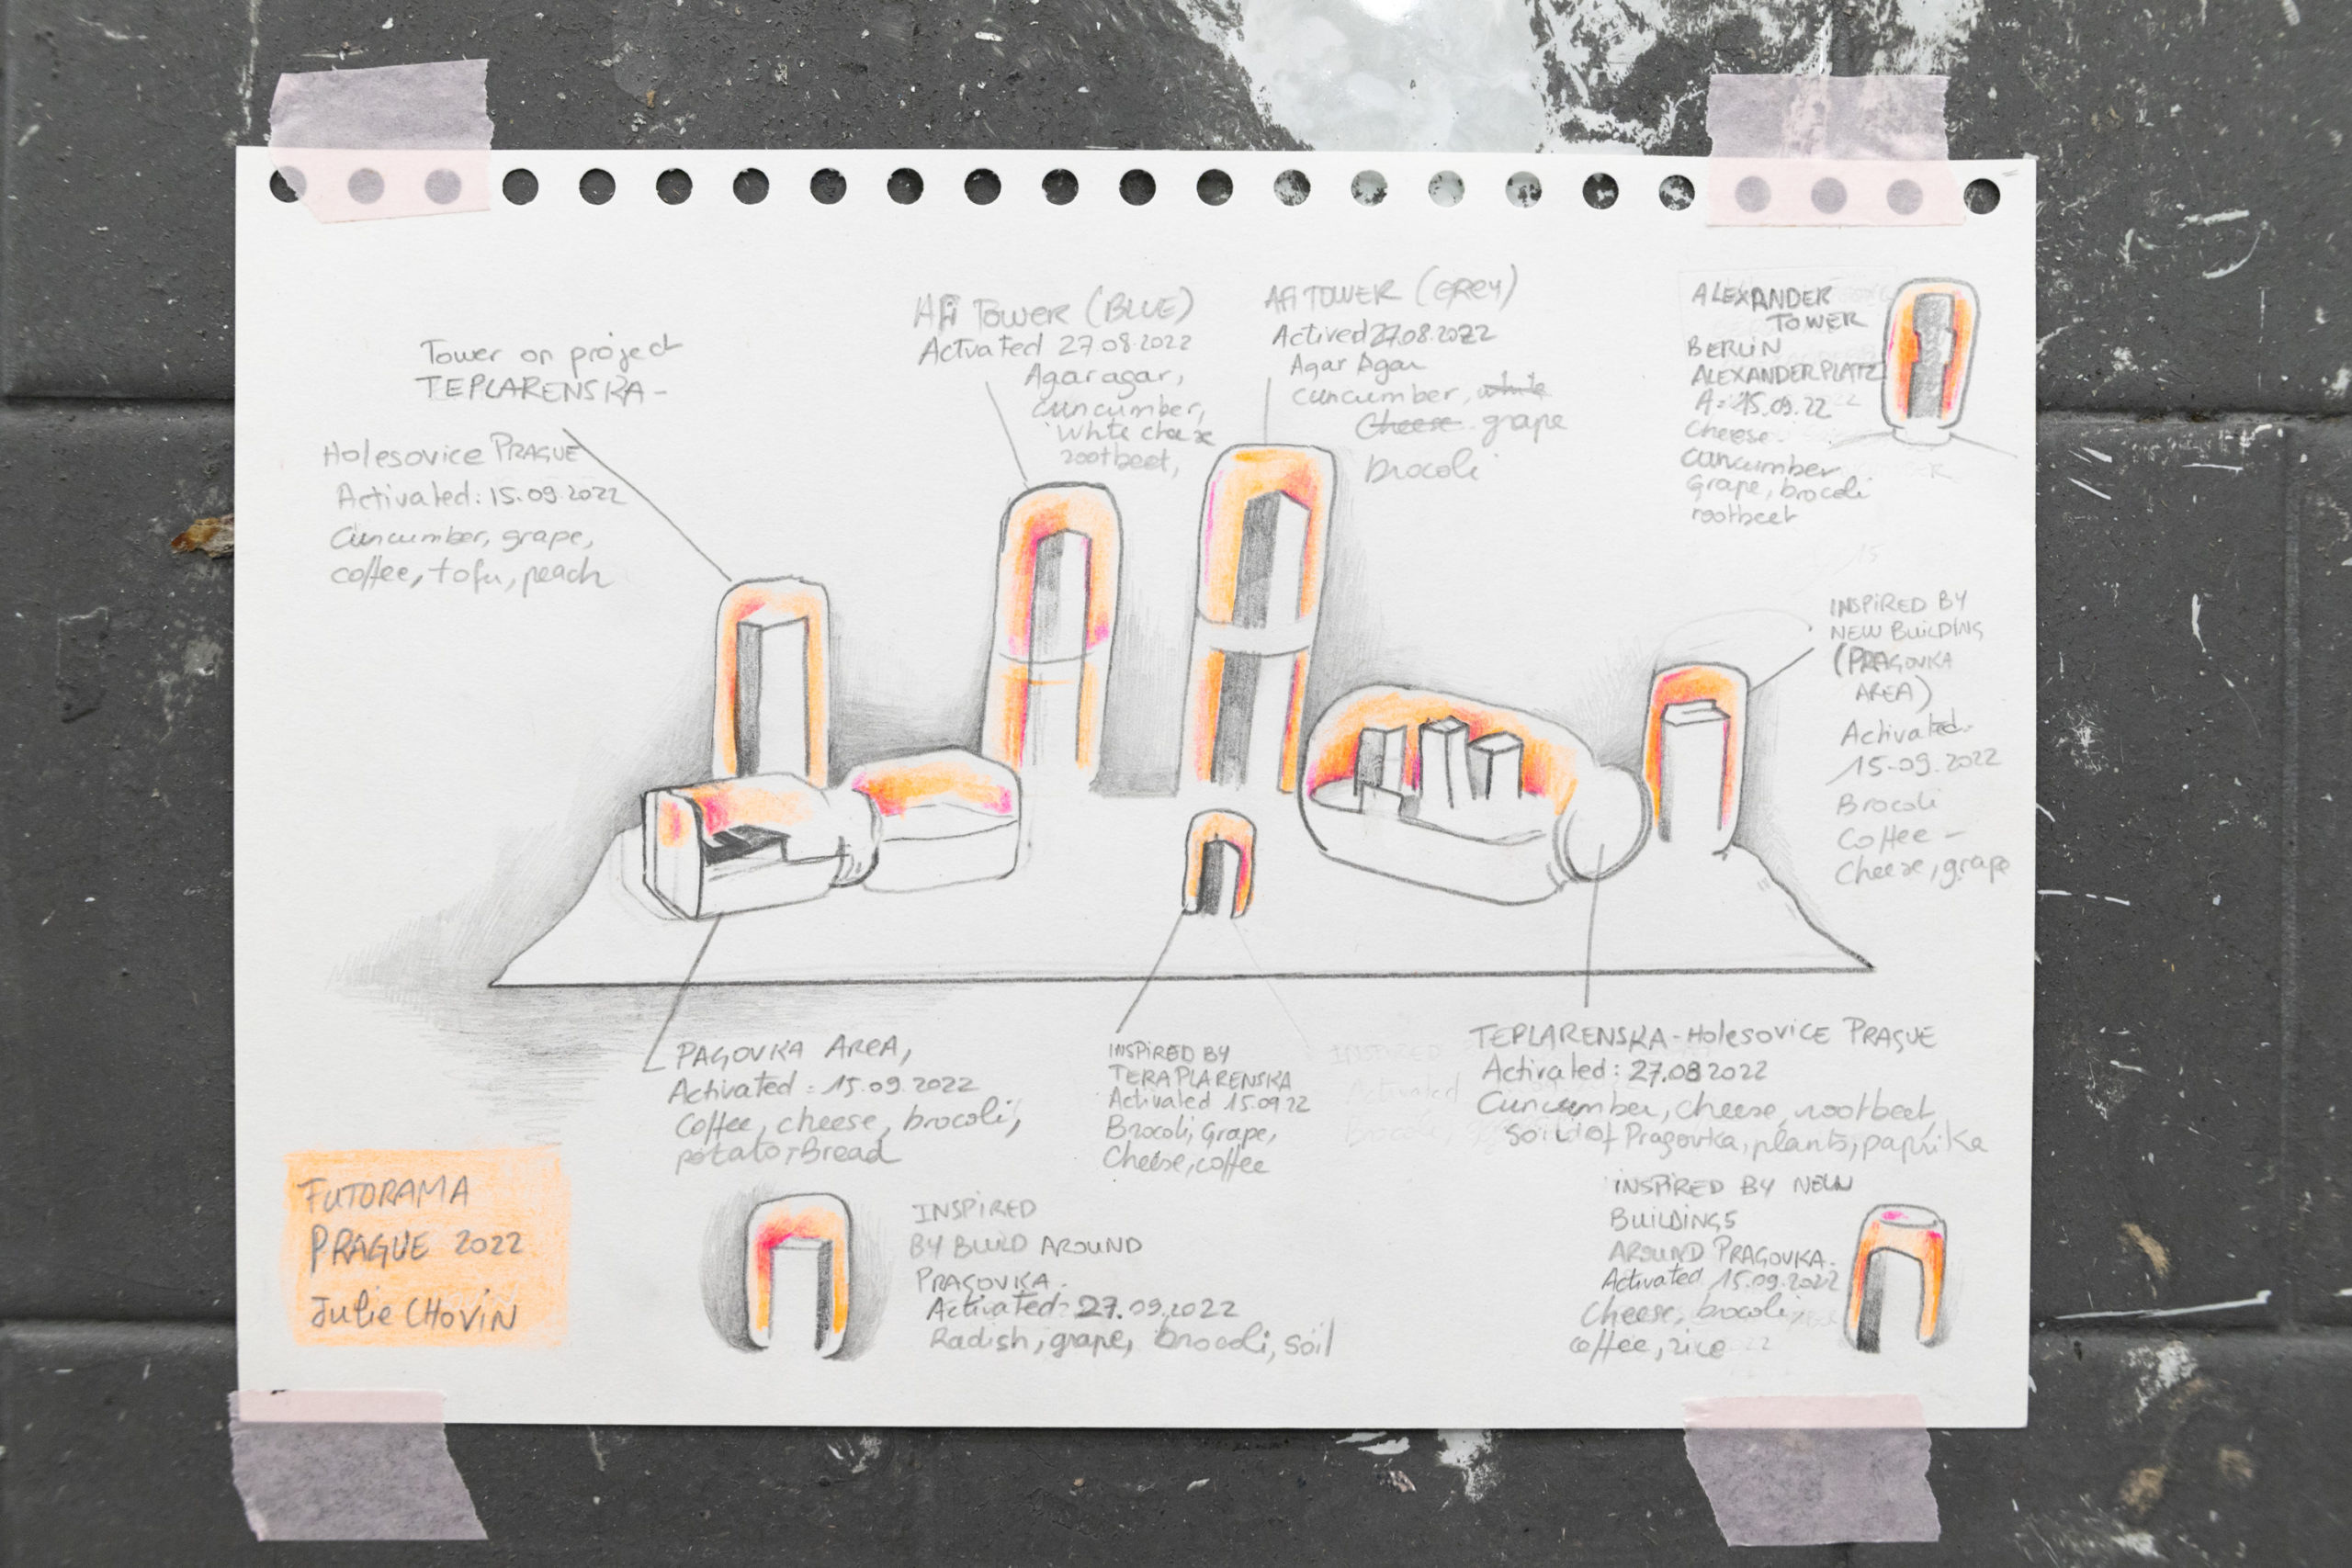 Tower on project
TEPLARENSKA-
Holesovice PRAGUE
Activated: 15.09.2022
Cuncumber, grape,
coffee, tofu, peach
AFi Tower (BLUE)
Actvated 27.08.2022
Agar agar,
cuncumber,
White
rootbeet,
AFi TOWER (GREY)
Actived 27.08.2022
Agar Agar
cuncumber, white
Cheese. grape
brocoli
ALEXANDER
TOWER
BERLIN
ALEXANDERPLATZ
A: 15.09.22
Cheese
cuncumber
Grape, brocoli
rootbeet
INSPIRED BY
NEW BUILDING
(PRAGOVKA
AREA)
Activated:
15-09.2022
Brocoli
Coffee -
Cheese, grape
PAGOVKA AREA,
Activated: 15.09.2022
Coffee, cheese, brocoli,
potato, Bread
INSPIRED BY
TERAPLARENSKA
Activated 15.09.22
Brocoli, Grape,
Cheese, coffee
Activated
TEPLARENSKA-Holesovice PRAGUE
Activated: 27.08 2022
Cuncumber, cheese, rootbeet,
Soil of Pragovka, plants, paprika
FUTORAMA
PRAGUE 2022
Julie CHOVIN
INSPIRED
BY BUILD AROUND
PRAGOVKA.
Activated: 27.09.2022
Radish, grape, brocoli, soil
INSPIRED BY NEW
BUILDINGS
AROUND PRAGOVKA.
Activated 15.09.2022
Cheese, brocoli,
coffee, rice